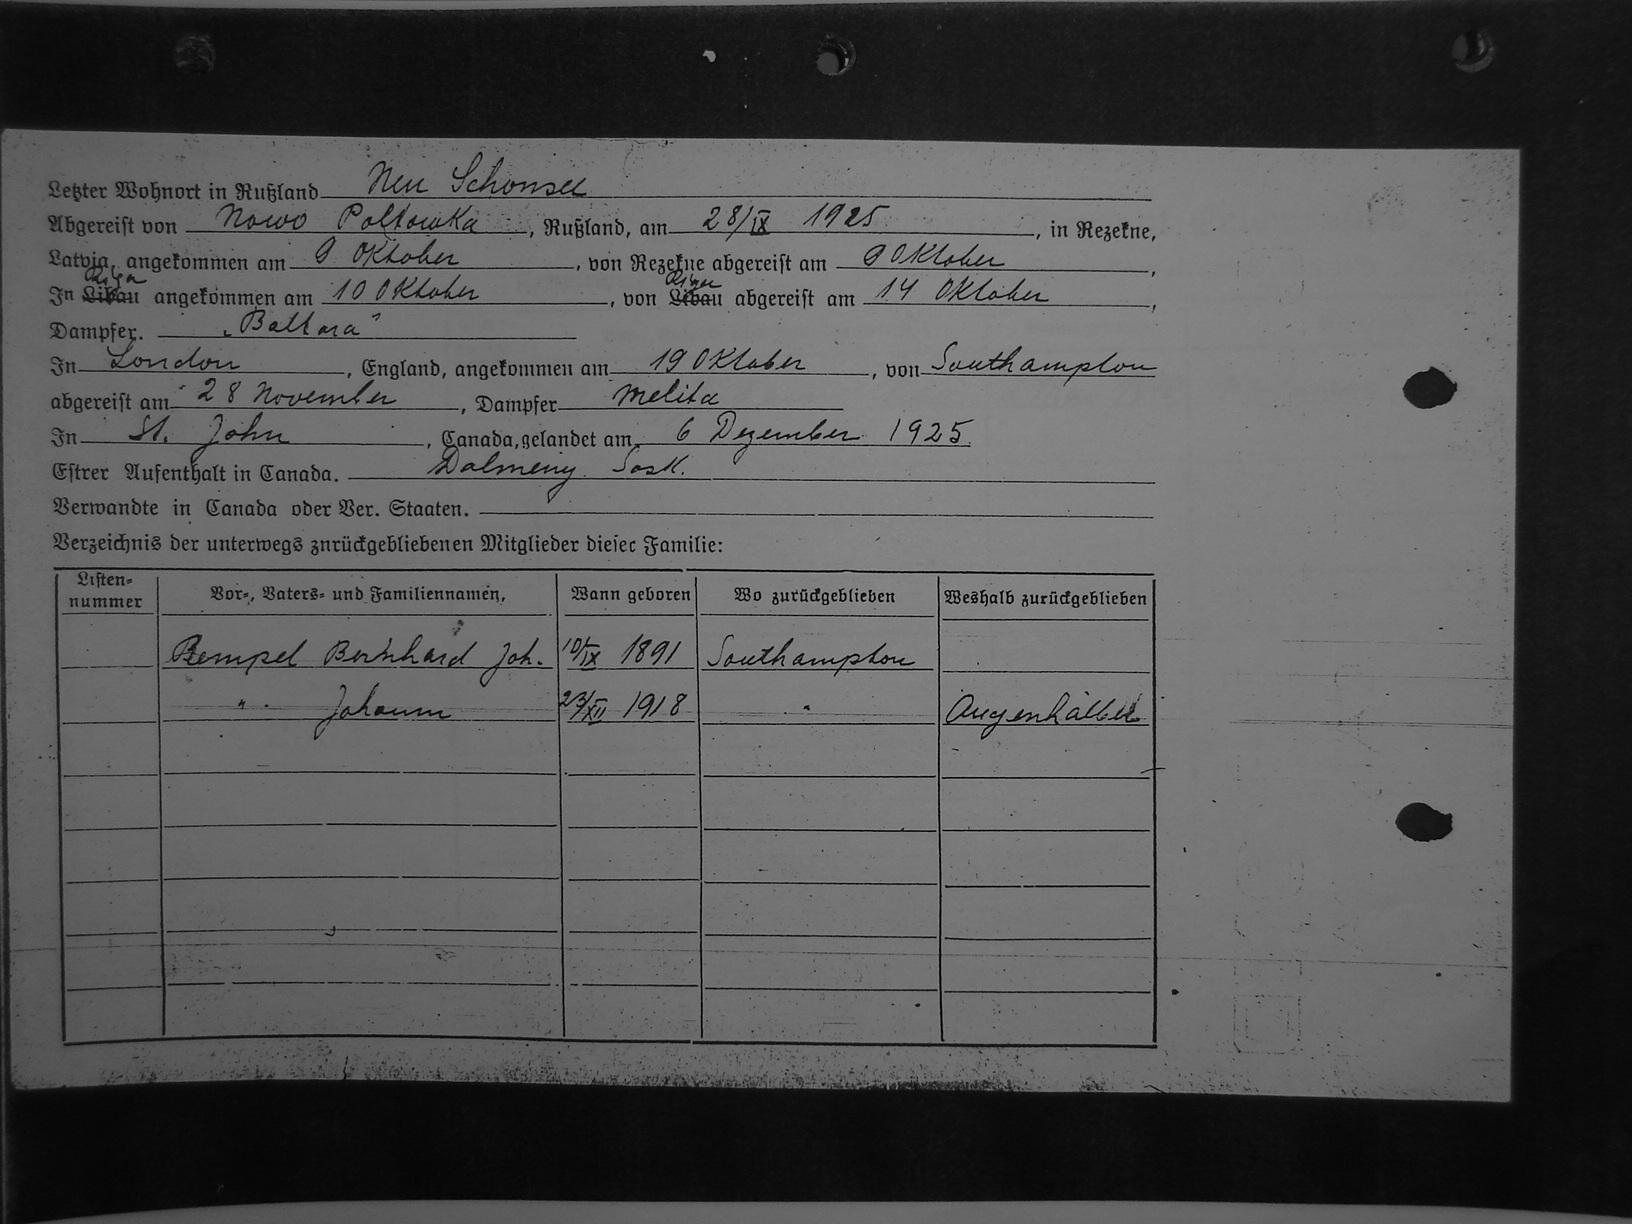 Letzter Wohnort in Rußland Neu Schonsee
Abgereist von Nowo Poltowka, Rußland, am 28/IX 1925, in Rezekne,
Latvia, angekommen am 9 Oktober, von Rezekne abgereist am 9 Oktober,
Riga Riga
In Libau angekommen am 10 Oktober, von Libau abgereist am 14 Oktober,
Dampfer. „Baltara"
In London, England, angekommen am 19 Oktober, von Southampton
abgereist am 28 November, Dampfer Melita
In St. John, Canada, gelandet am 6 Dezember 1925
Estrer Aufenthalt in Canada. Dalmeny Sask.
Verwandte in Canada oder Ver. Staaten.
Verzeichnis der unterwegs znrückgebliebenen Mitglieder dieser Familie:
Listen-nummer Vor-, Vaters- und Familiennamen, Wann geboren Wo zurückgeblieben Weshalb zurückgeblieben
Rempel Bernhard Joh. 10/IX 1891 Southampton
" Johann 23/XII 1918 " Augenhalber